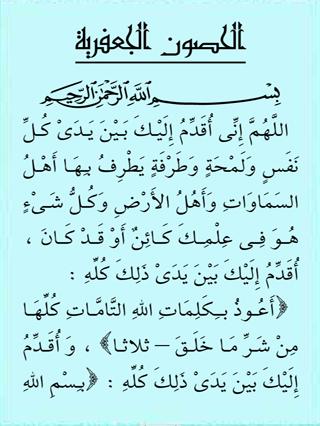 الحصون الجعفرية
بِسْمِ اللَّهِ الرَّحْمَٰنِ الرَّحِيمِ
اللَّهُمَّ إِنِّى أُقَدِّمُ إِلَيْكَ بَيْنَ يَدَىْ كُلِّ
نَفَسٍ وَلَمْحَةٍ وَطَرْفَةٍ يَطْرِفُ بِهَا أَهْلُ
السَّمَاوَاتِ وَأَهْلُ الأَرْضِ وَكُلُّ شَىْءٍ
هُوَ فِى عِلْمِكَ كَائِنٌ أَوْ قَدْ كَانَ ،
أُقَدِّمُ إِلَيْكَ بَيْنَ يَدَىْ ذَلِكَ كُلِّهِ :
﴿أَعُوذُ بِكَلِمَاتِ اللهِ التَّامَّاتِ كُلِّهَا
مِنْ شَرِّ مَا خَلَقَ – ثلاثا﴾ ، وَ أُقَدِّمُ
إِلَيْكَ بَيْنَ يَدَىْ ذَلِكَ كُلِّهِ : ﴿بِسْمِ اللهِ